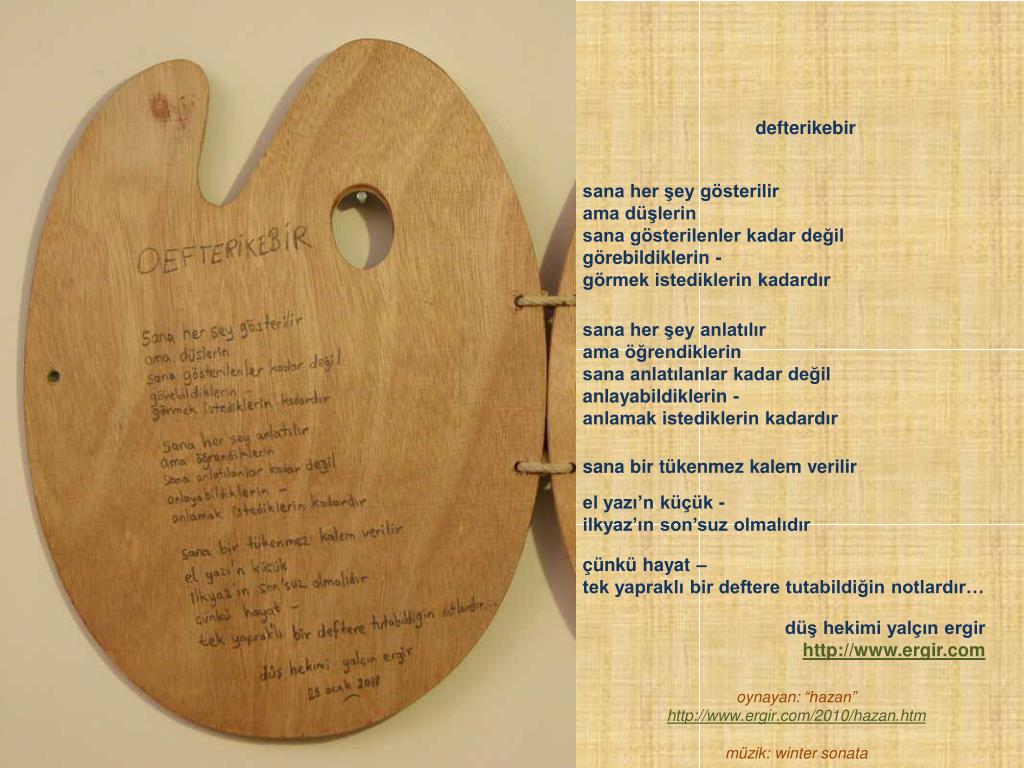 DEFTERİKEBİR
Sana her şey gösterilir
ama düşlerin
sana gösterilenler kadar değil
görebildiklerin -
görmek istediklerin kadardır
Sana her şey anlatılır
ama öğrendiklerin
sana anlatılanlar kadar değil
anlayabildiklerin -
anlamak istediklerin kadardır
sana bir tükenmez kalem verilir
el yazı'n küçük
ilkyaz'ın son'suz olmalıdır
çünkü hayat -
tek yapraklı bir deftere tutabildiğin notlardır...
düş hekimi yalçın ergir
25 ocak 2011
defterikebir
sana her şey gösterilir
ama düşlerin
sana gösterilenler kadar değil
görebildiklerin -
görmek istediklerin kadardır
sana her şey anlatılır
ama öğrendiklerin
sana anlatılanlar kadar değil
anlayabildiklerin -
anlamak istediklerin kadardır
sana bir tükenmez kalem verilir
el yazı’n küçük -
ilkyaz’ın son’suz olmalıdır
çünkü hayat –
tek yapraklı bir deftere tutabildiğin notlardır…
düş hekimi yalçın ergir
http://www.ergir.com
oynayan: “hazan”
http://www.ergir.com/2010/hazan.htm
müzik: winter sonata